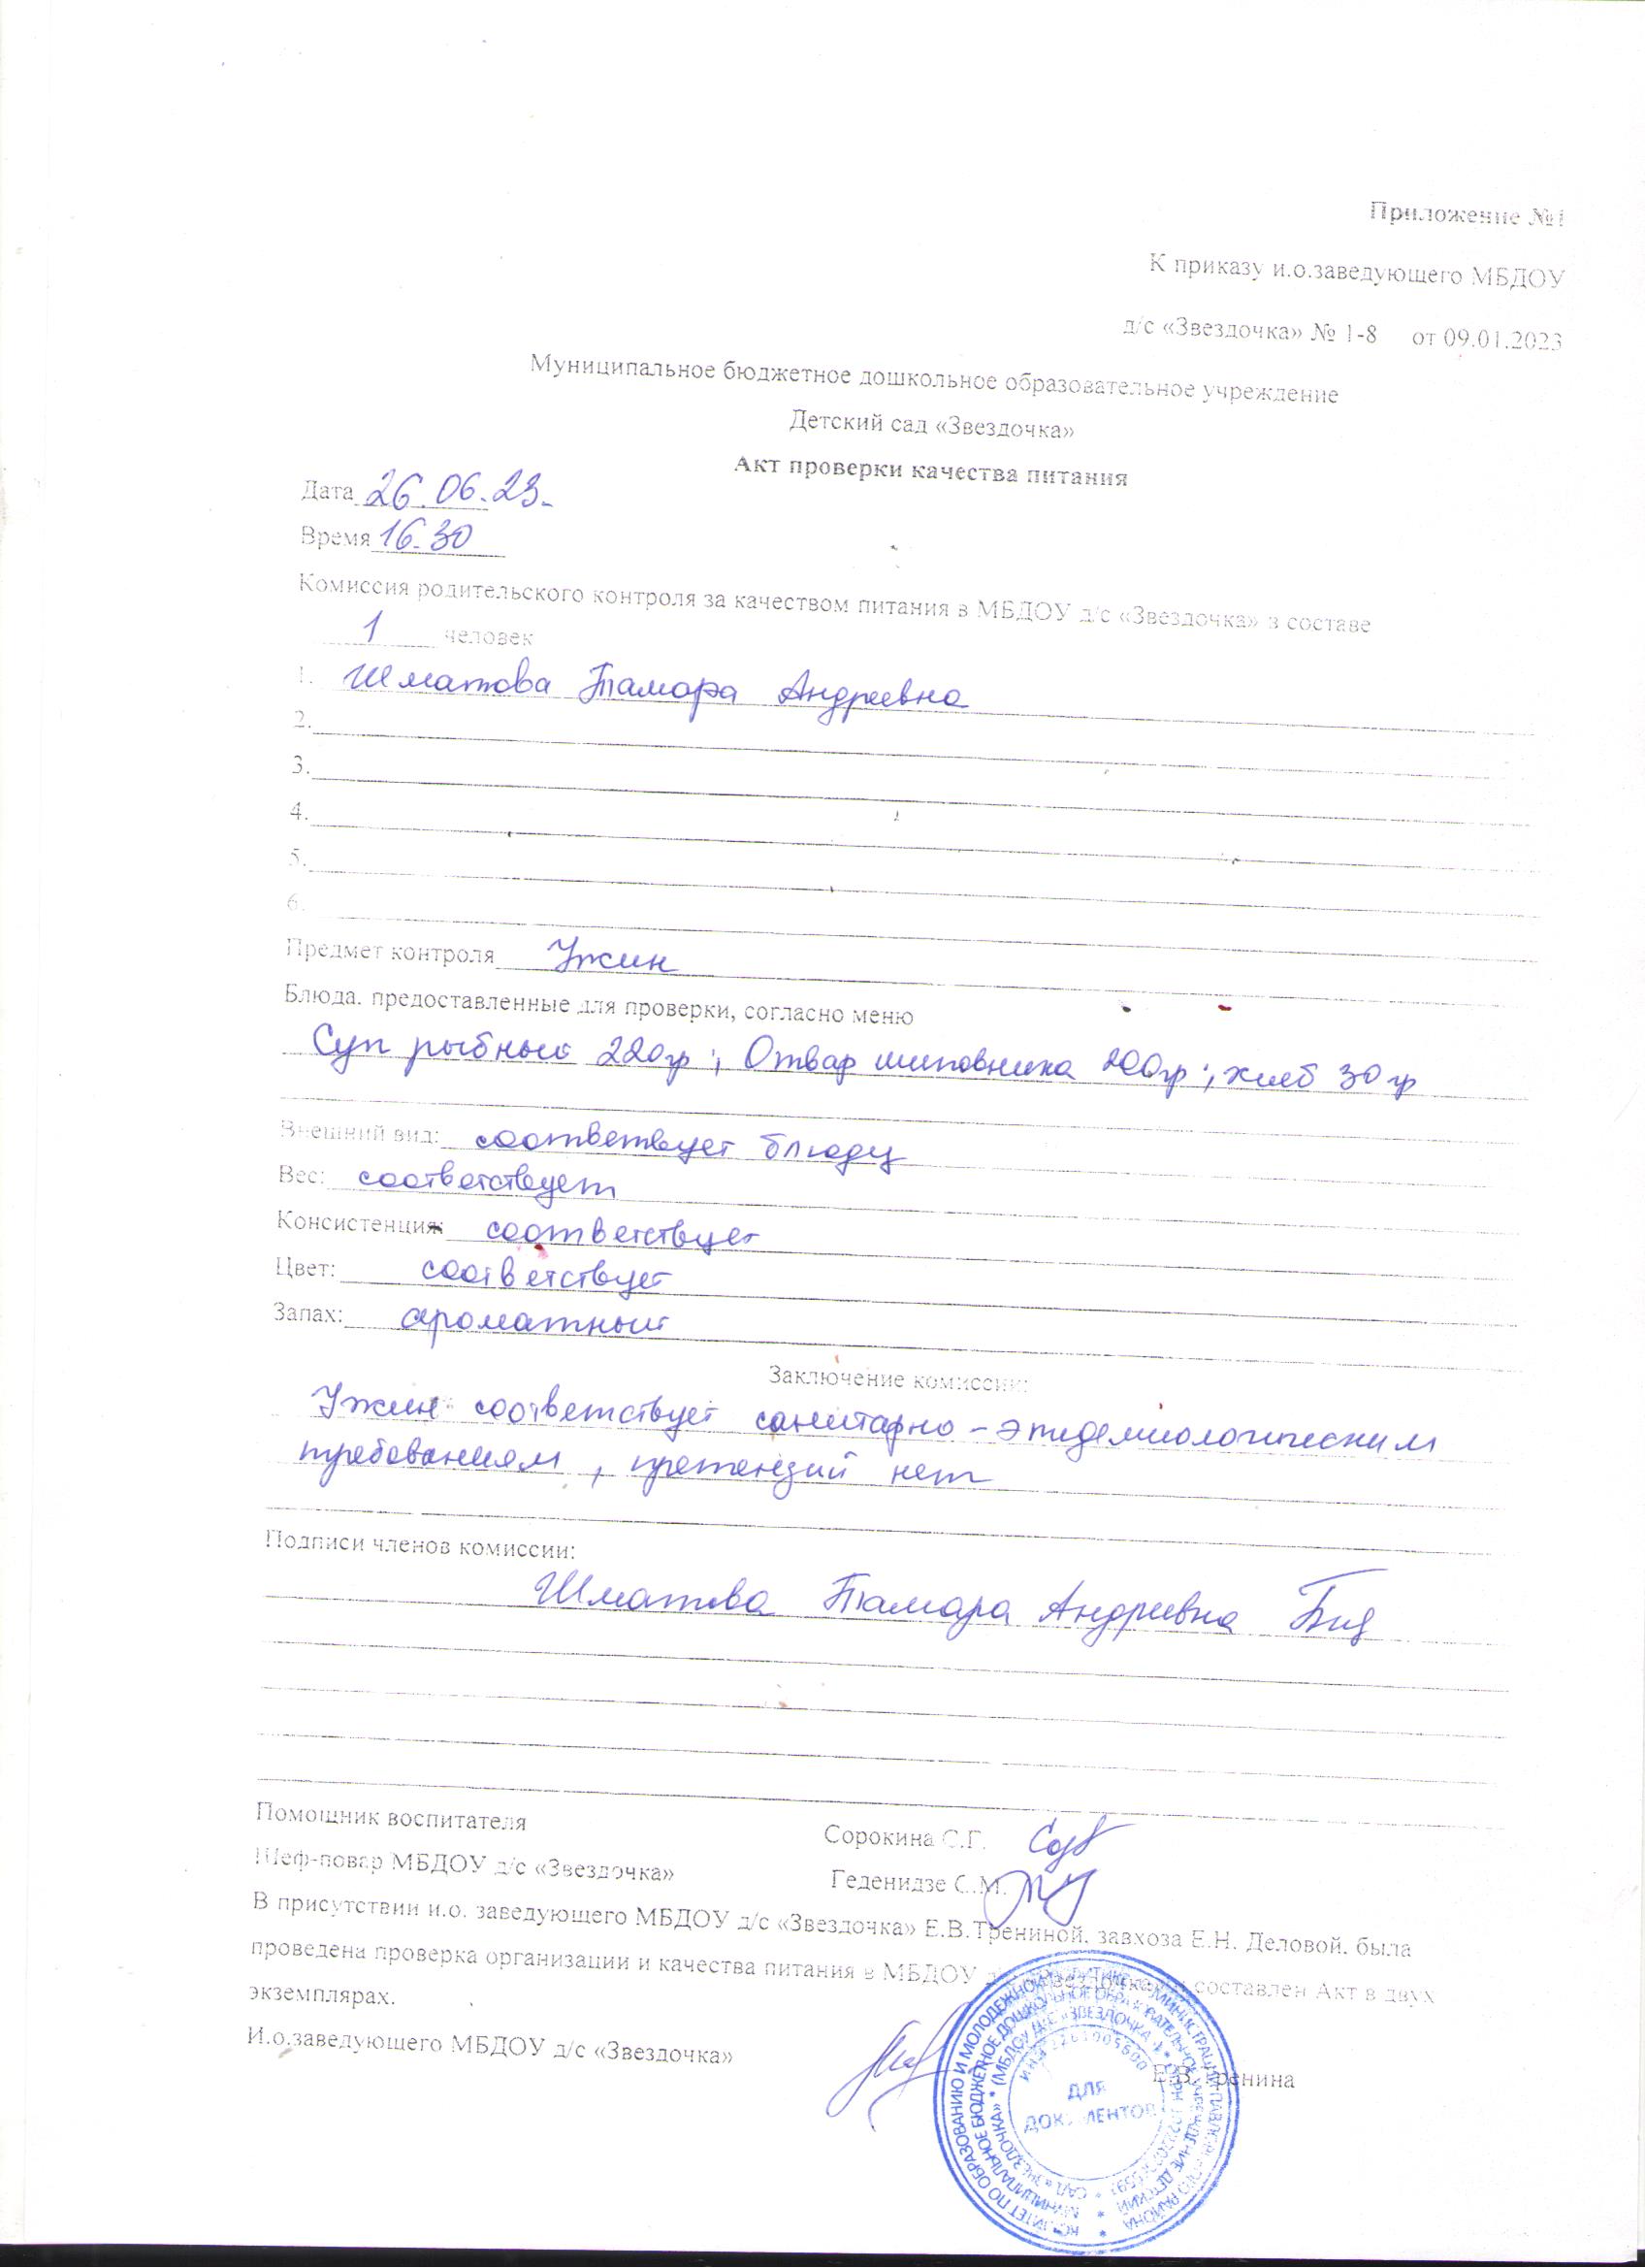 Приложение №1
К приказу и.о.заведующего МБДОУ
д/с «Звездочка» № 1-8 от 09.01.2023
Муниципальное бюджетное дошкольное образовательное учреждение
Детский сад «Звездочка»
Акт проверки качества питания
Дата 26.06.23.
Время 16.30
Комиссия родительского контроля за качеством питания в МБДОУ д/с «Звездочка» в составе
1 человек
1. Шматова Тамара Андреевна
2.
3.
4.
5.
6.
Предмет контроля Ужин
Блюда. предоставленные для проверки, согласно меню
Суп рыбный 220гр; Отвар шиповника 200гр; хлеб 30 гр
Внешний вид: соответвует блюду
Вес: соответствует
Консистенция: соответствует
Цвет: соответствует
Запах: ароматный
Заключение комиссии:
Ужин соответствует санитарно-эпидемиологическим
требованиям, претензий нет
Подписи членов комиссии:
Шматова Тамара Андреевна
Помощник воспитателя Сорокина С.Г.
Шеф-повар МБДОУ д/с «Звездочка» Геденидзе С.М.
В присутствии и.о. заведующего МБДОУ д/с «Звездочка» Е.В.Трениной, завхоза Е.Н. Деловой. была
проведена проверка организации и качества питания в МБДОУ составлен Акт в двух
экземплярах.
И.о.заведующего МБДОУ д/с «Звездочка» Е.В.Тренина
ДЛЯ
ДОКУМЕНТОВ